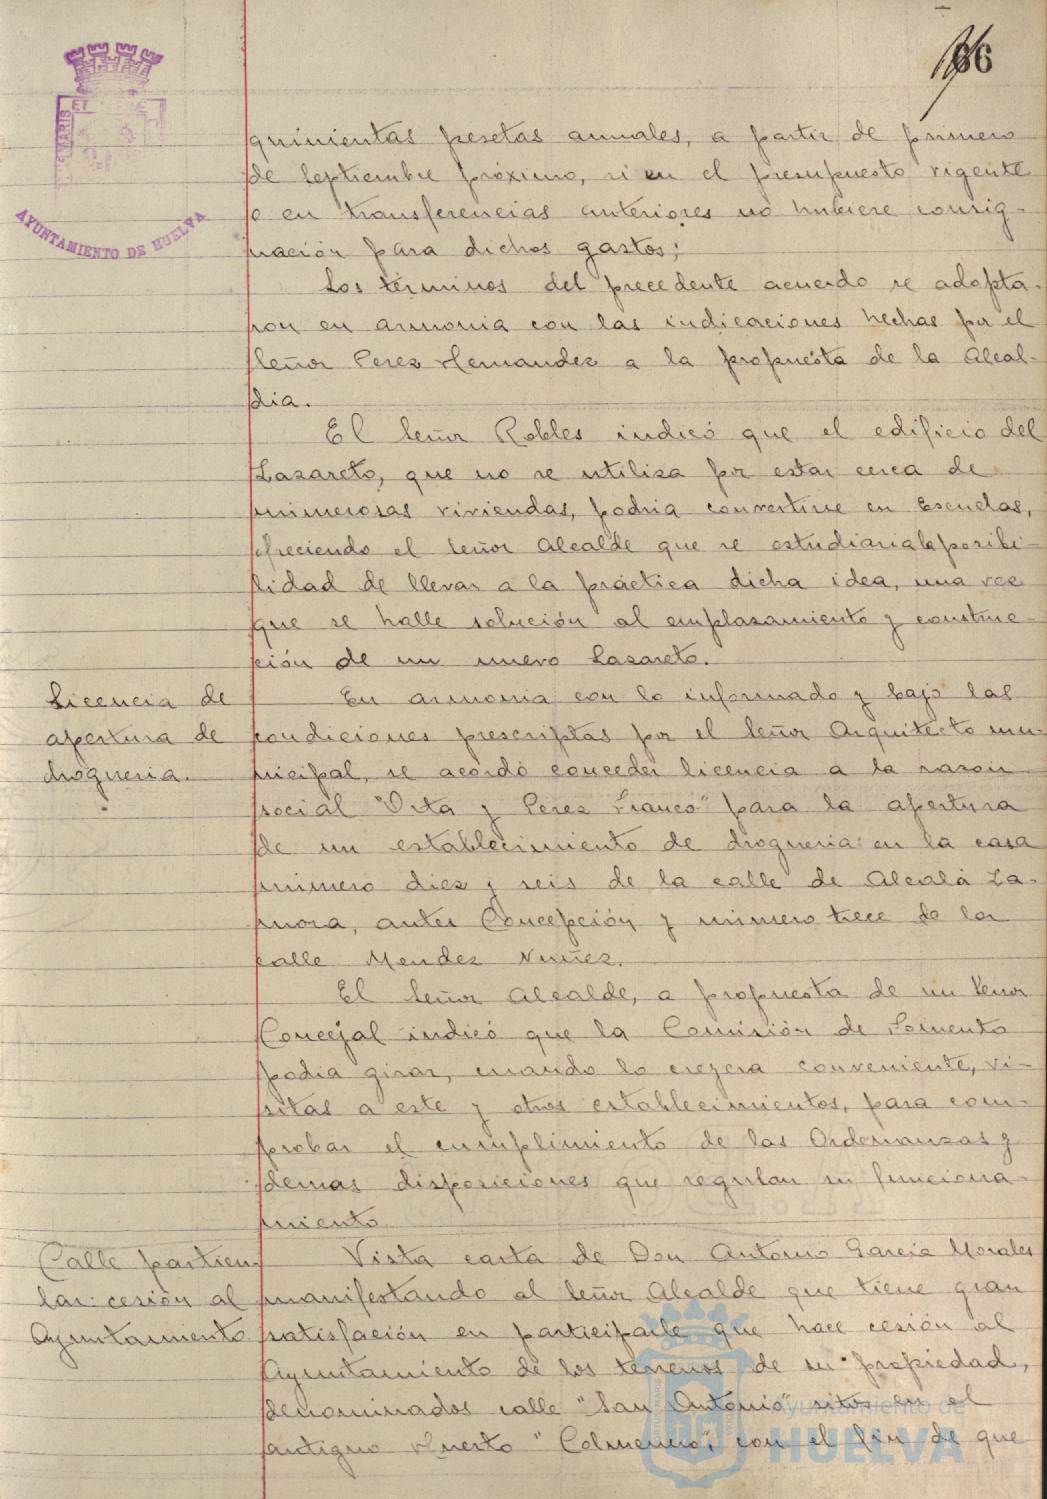 66
AYUNTAMIENTO DE HUELVA
quinientas pesetas anuales, a partir de primero
de Septiembre próximo, si en el presupuesto vigente
o en transferencias anteriores no hubiere consig-
nación para dichos gastos;
Los términos del precedente acuerdo se adopta-
ron en armonia con las indicaciones hechas por el
Señor Perez Hernandez a la propuesta de la Alcal-
dia.
El Señor Robles indicó que el edificio del
Lazareto, que no se utiliza por estar cerca de
numerosas viviendas, podria convertirse en Escuelas,
ofreciendo el Señor Alcalde que se estudiaria la posibi-
lidad de llevar a la práctica dicha idea, una vez
que se halle solución al emplazamiento y construc-
ción de un nuevo Lazareto.
Licencia de
apertura de
drogueria.
En armonia con lo informado y bajo las
condiciones prescriptas por el Señor Arquitecto mu-
nicipal, se acordó conceder licencia a la razon
social "Orta y Perez Franco" para la apertura
de un establecimiento de drogueria en la casa
número diez y seis de la calle de Alcalá Za-
mora, antes Concepción y número trece de la
calle Mendez Nuñez.
El Señor Alcalde, a propuesta de un Señor
Concejal indicó que la Comisión de Fomento
podia girar, cuando lo creyera conveniente, vi-
sitas a este y otros establecimientos, para com-
probar el cumplimiento de las Ordenanzas y
demas disposiciones que regulan su funciona-
miento.
Calle particu-
lar: cesión al
Ayuntamiento
Vista carta de Don Antonio Garcia Morales
manifestando al Señor Alcalde que tiene gran
satisfación en participarle que hace cesión al
Ayuntamiento de los terrenos de su propiedad,
denominados calle "San Antonio" sitos en el
antiguo Huerto "Colmenero", con el fin de que
Ayuntamiento de
HUELVA